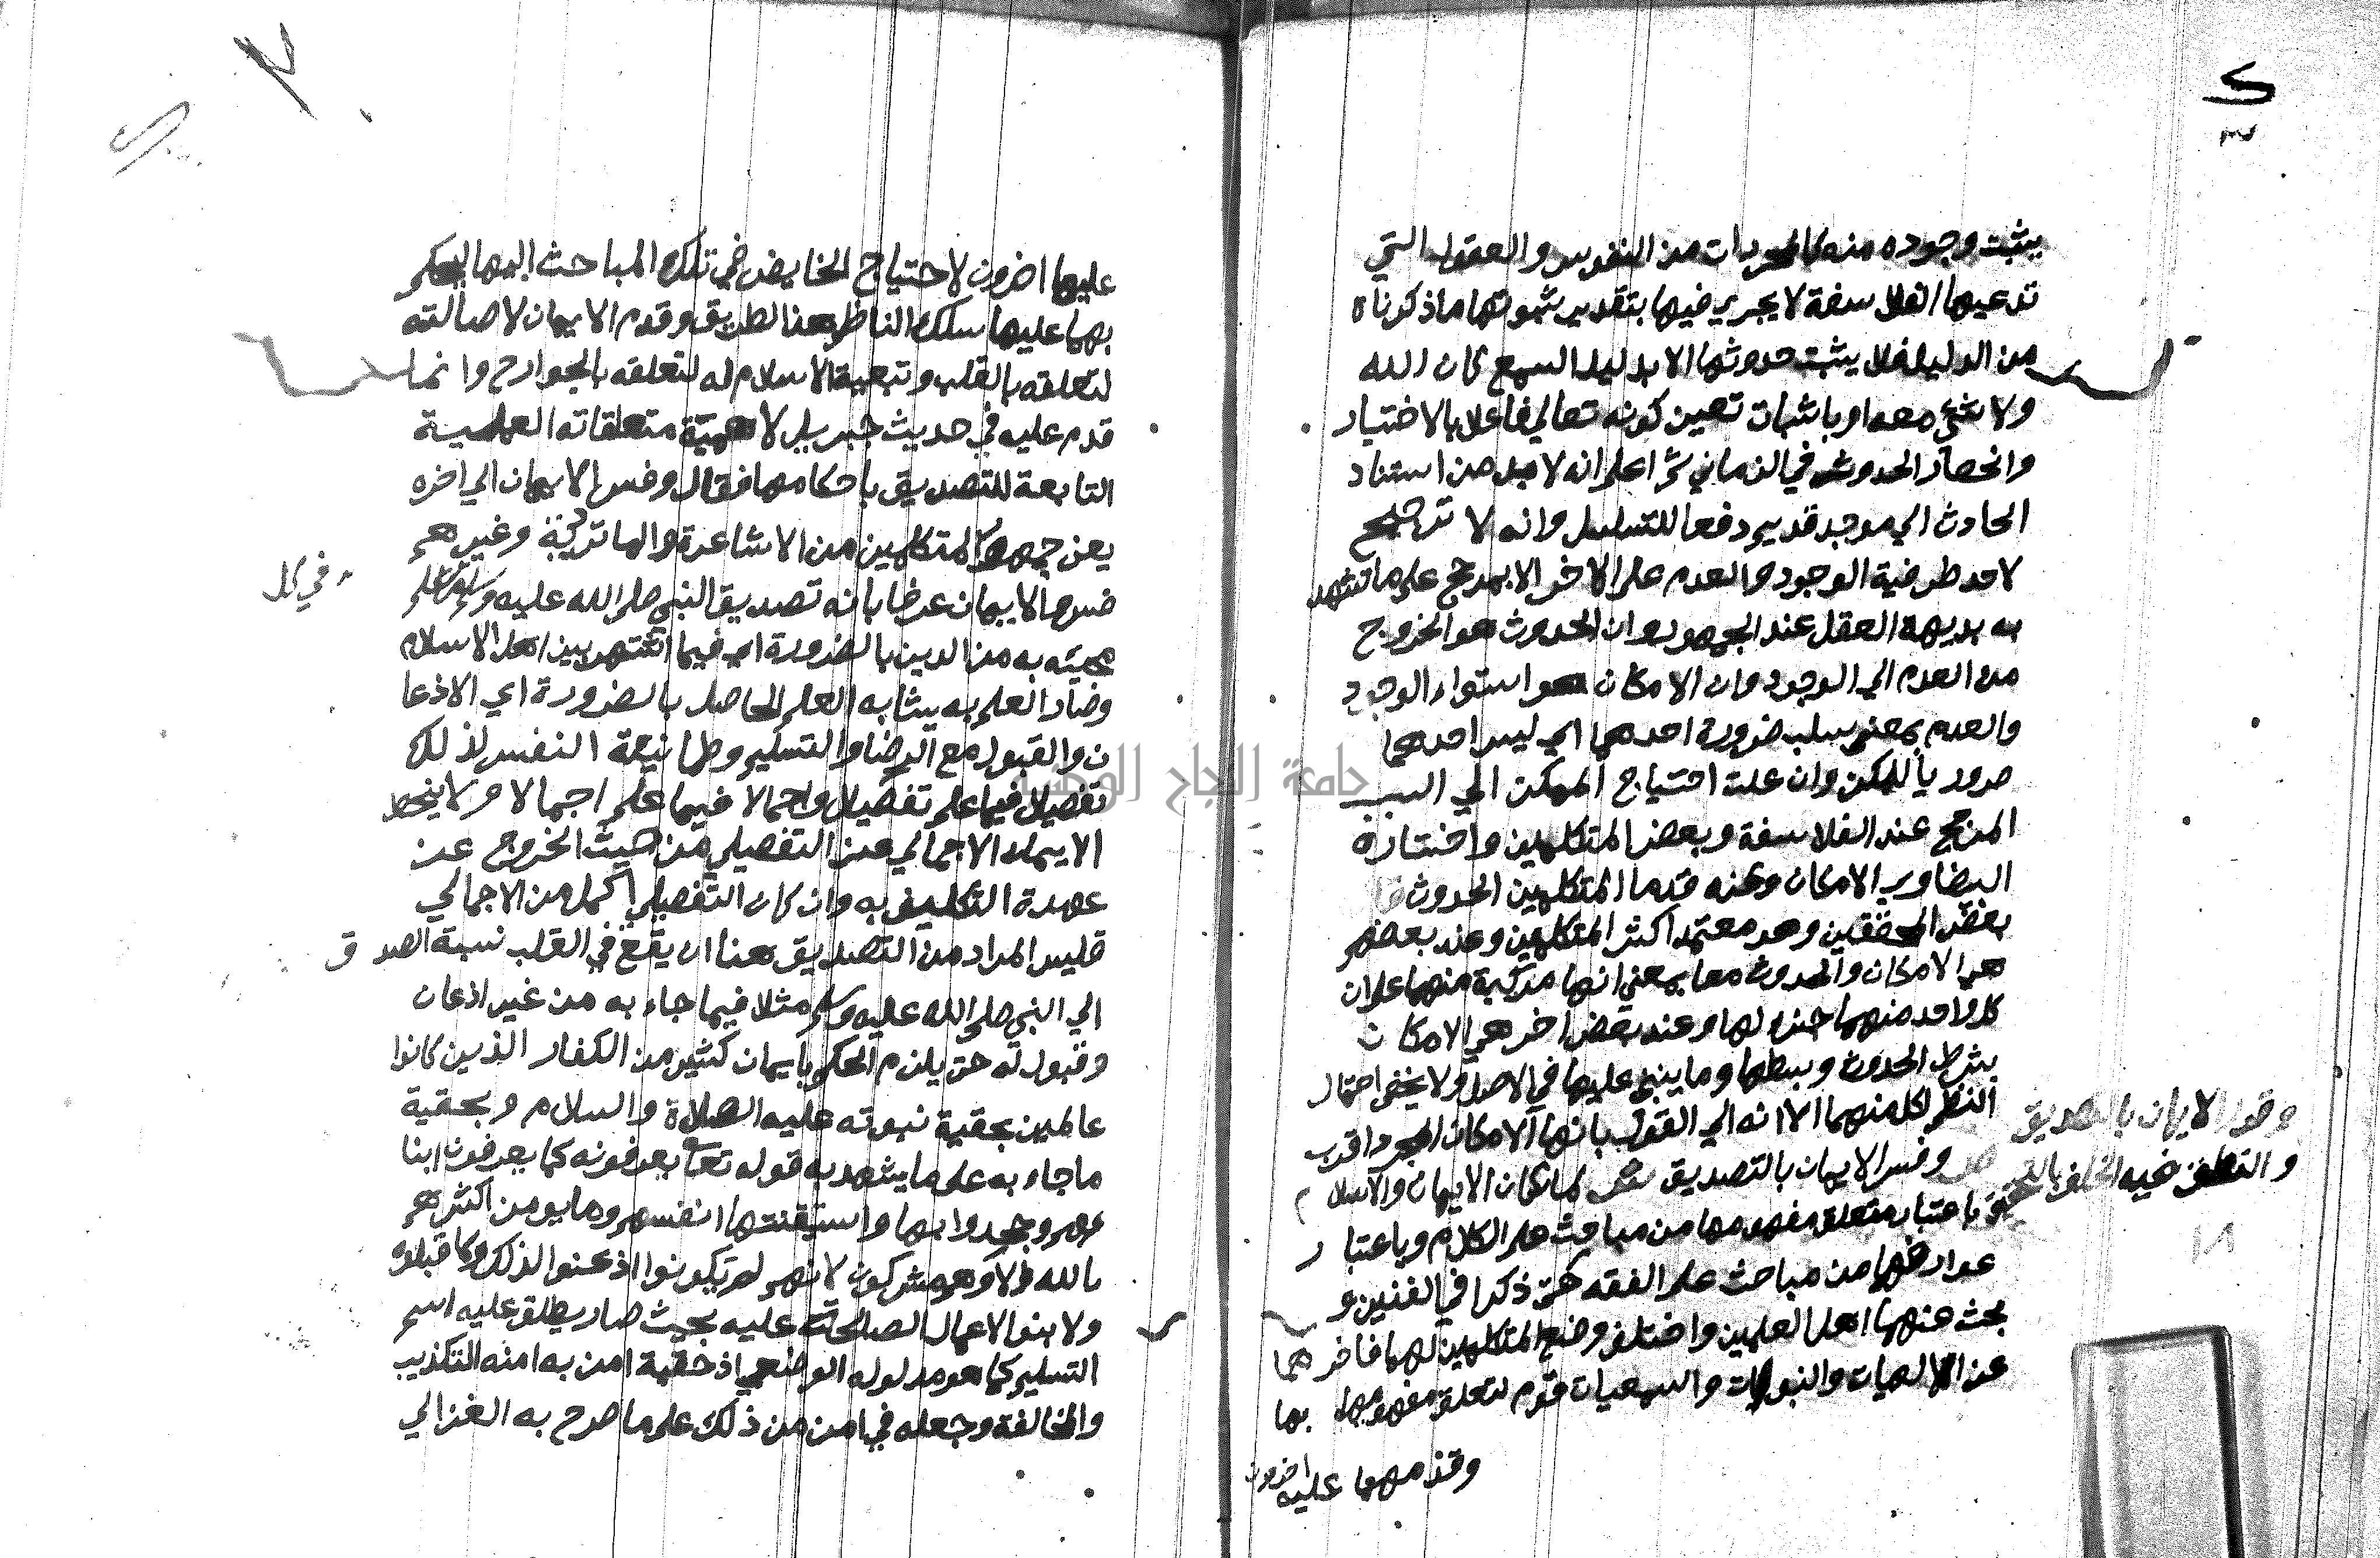 يثبت وجوده منه كالمجردات من النفوس والعقول التي
تدعيها الفلاسفة لا يجري فيها بتقدير ثبوتها ما ذكرناه
من الدليل فلا يثبت حدوثها الا بدليل السمع كان الله
ولا شيء معه او باثبات تعين كونه تعالي فاعلا بالاختيار
وانحصار الحدوث في الزماني ثم اعلم انه لا بد من استناد
الحادث الي موجد قديم دفعا للتسلسل وانه لا ترجيح
لاحد طرفية الوجود والعدم علي الاخر الا بمرجح علي ما تشهد
به بديهة العقل عند الجمهور وان الحدوث هو الخروج
من العدم الي الوجود وان الامكان هو استواء الوجود
والعدم بمعني سلب ضرورة احدهما اي ليس احدهما
ضروريا للممكن وان علت احتياج الممكن الي السبب
المرجح عند الفلاسفة وبعض المتكلمين واختاره
البيضاوي الامكان وعنه قدما المتكلمين الحدوث
بعض المحققين وهو معتمد اكثر المتكلمين وعند بعضهم
هي الامكان والحدوث معا بمعني انها مركبة منهما علي ان
كل واحد منهما جزء لها وعند بعض اخر هي الامكان
بشرط الحدوث وبسطها وما ينبني عليها في الاصل ولا يخفي احتمال
النظم لكل منهما الا انه الي القول بانها الامكان المجرد اقرب
وقوله الايمان بالتصديق
ص وفسر الايمان بالتصديق ش لما كان الايمان والاسلام
والنطق فيه الخلف بالتحقيق
باعتبار متعلق مفهومهما من مباحث علم الكلام وباعتبار
عوارضهما من مباحث علم الفقه حتي ذكرا في الفنين و
بحث عنهما اهل العلمين واختلف وضع المتكلمين لهما فاخرهما
عن الالهيات والنبوات والسمعيات قوم لتعلق مفهومهما بها
وقدمهما عليه اخرون
عليها اخرون لاحتياج الخايض في تلك المباحث اليهما ليحكم
بهما عليها سلك الناظم هذا الطريق وقدم الايمان لاصالته
لتعلقه بالقلب وتبعية الاسلام له لتعلقه بالجوارح وانما
قدم عليه في حديث جبريل لاهمية متعلقاته العملية
التابعة للتصديق باحكامها فقال وفسر الايمان الي اخره
يعني جمهور المتكلمين من الاشاعرة والماتريدية وغيرهم
فسروا الايمان عرفا بانه تصديق النبي صلي الله عليه وسلم
في كل
مجيئه به من الدين بالضرورة اي فيما اشتهر بين اهل الاسلام
وصار العلم به يشابه العلم الحاصل بالضرورة اي الاذعا
ن والقبول مع الرضا والتسليم وطمانينة النفس لذلك
تفصيلا فيما علم تفصيلا واجمالا فيما علم اجمالا ولا ينحط
الايمان الاجمالي عن التفصيلي من حيث الخروج عن
عهدة التكليف به وان كان التفصيلي اكمل من الاجمالي
فليس المراد من التصديق هنا ان يقع في القلب نسبة الصدق
الي النبي صلي الله عليه وسلم مثلا فيما جاء به من غير اذعان
وقبول له حتي يلزم الحكم بايمان كثير من الكفار الذين كانوا
عالمين بحقية نبوته عليه الصلاة والسلام وبحقية
ما جاء به علي ما يشهد به قوله تعا يعرفونه كما يعرفون ابنا
ءهم وجحدوا بها واستيقنتها انفسهم وما يومن اكثرهم
بالله الا وهم مشركون لانهم لم يكونوا اذعنوا لذلك ولا قبلوه
ولا بنوا الاعمال الصالحة عليه بحيث صار يطلق عليه اسم
التسليم كما هو مدلوله الوضعي اذ حقيقة امن به امنه التكذيب
والمخالفة وجعله في امن من ذلك علي ما صرح به الغزالي
جامعة النجاح الوطنية